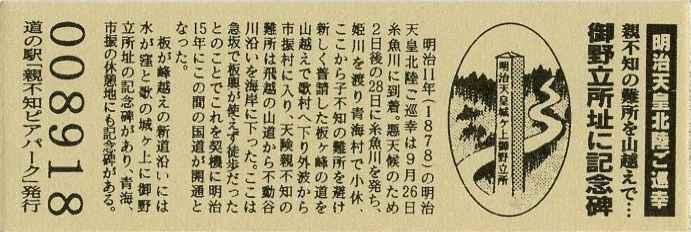 明治天皇北陸ご巡幸
親不知の難所を山越えで…
御野立所址に記念碑
明治天皇城ヶ上御野立所
明治11年(1878)の明治
天皇北陸ご巡幸は9月26日
糸魚川に到着。悪天候のため
2日後の28日に糸魚川を発ち、
姫川を渡り青海村で小休、
ここから子不知の難所を避け
新しく普請した板ヶ峰の道を
山越えで歌村へ下り外波から
市振村に入り、天険親不知の
難所は飛越の山道から不動谷
川沿いを海岸に下った。ここは
急坂で板輿が使えず徒歩だった
とのことでこれを契機に明治
15年にこの間の国道が開通と
なった。
板が峰越えの新道沿いには
水が窪と歌の城ヶ上に御野
立所址の記念碑があり、青海、
市振の休憩地にも記念碑がある。
008918
道の駅「親不知ピアパーク」発行